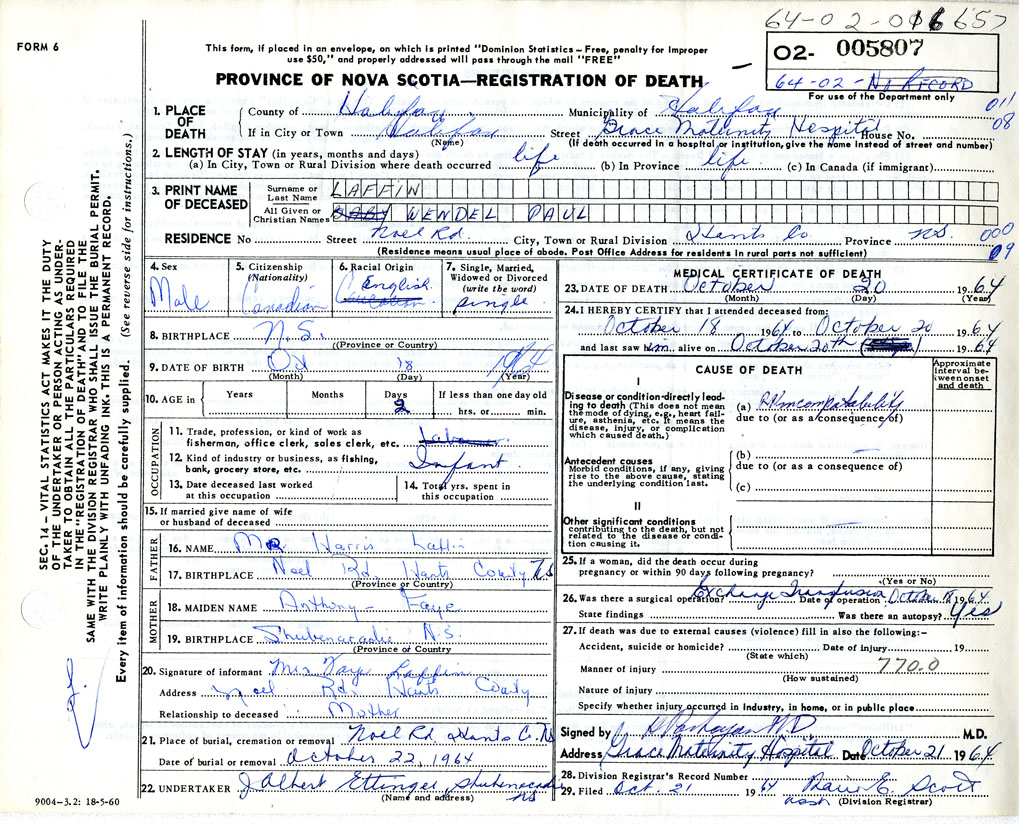 64-02-016657
FORM 6
This form, if placed in an envelope, on which is printed "Dominion Statistics – Free, penalty for improper
use $50," and properly addressed will pass through the mail "FREE"
02- 005807
64-02-No RECORD
For use of the Department only
PROVINCE OF NOVA SCOTIA—REGISTRATION OF DEATH
1. PLACE OF DEATH
County of Halifax Municipality of Halifax 011
If in City or Town Halifax Street Grace Maternity Hospital House No. 08
(Name) (If death occurred in a hospital or institution, give the name instead of street and number)
2. LENGTH OF STAY (in years, months and days)
(a) In City, Town or Rural Division where death occurred life (b) In Province life (c) In Canada (if immigrant)
3. PRINT NAME OF DECEASED
Surname or Last Name LAFFIN
All Given or Christian Names BABY WENDEL PAUL
RESIDENCE No Street Noel Rd. City, Town or Rural Division Hants Co Province N.S. 000
(Residence means usual place of abode. Post Office Address for residents in rural parts not sufficient) 09
4. Sex Male
5. Citizenship (Nationality) Canadian
6. Racial Origin English
7. Single, Married, Widowed or Divorced (write the word) single
8. BIRTHPLACE N.S.
((Province or Country)
9. DATE OF BIRTH Oct 18 1964
(Month) (Day) (Year)
10. AGE in Years Months Days 2 If less than one day old hrs. or min.
OCCUPATION
11. Trade, profession, or kind of work as fisherman, office clerk, sales clerk, etc. Labourer
12. Kind of industry or business, as fishing, bank, grocery store, etc. Infant
13. Date deceased last worked at this occupation
14. Total yrs. spent in this occupation
15. If married give name of wife or husband of deceased
FATHER
16. NAME Mr Harris Laffin
17. BIRTHPLACE Noel Rd. Hants County N.S
(Province or Country)
MOTHER
18. MAIDEN NAME Anthony - Faye
19. BIRTHPLACE Shubenacadie N.S.
(Province or Country)
20. Signature of informant Mrs Faye Laffin
Address Noel Rd. Hants County
Relationship to deceased Mother
21. Place of burial, cremation or removal Noel Rd Hants Co. NS
Date of burial or removal October 22, 1964
22. UNDERTAKER J Albert Ettinger Shubenacadie
(Name and address) NS
MEDICAL CERTIFICATE OF DEATH
23. DATE OF DEATH October 20 1964
(Month) (Day) (Year)
24. I HEREBY CERTIFY that I attended deceased from:
October 18 1964 to October 20 1964
and last saw him alive on October 20th 1964
CAUSE OF DEATH
Approximate interval between onset and death
I
Disease or condition-directly leading to death (This does not mean the mode of dying, e.g., heart failure, asthenia, etc. It means the disease, injury, or complication which caused death.)
(a) Rh incompatability
due to (or as a consequence of)
Antecedent causes
Morbid conditions, if any, giving rise to the above cause, stating the underlying condition last.
(b) —
due to (or as a consequence of)
(c)
II
Other significant conditions contributing to the death, but not related to the disease or condition causing it. —
25. If a woman, did the death occur during pregnancy or within 90 days following pregnancy?
(Yes or No)
26. Was there a surgical operation? Exchange Transfusion Date of operation October 18 1964
State findings Was there an autopsy? Yes
27. If death was due to external causes (violence) fill in also the following:–
Accident, suicide or homicide? Date of injury 19
(State which)
Manner of injury 770.0
(How sustained)
Nature of injury
Specify whether injury occurred in industry, in home, or in public place
Signed by M.D. M.D.
Address Grace Maternity Hospital Date October 21 1964
28. Division Registrar's Record Number
29. Filed Oct. 21 1964 E. Scott
asst (Division Registrar)
SEC. 14 – VITAL STATISTICS ACT MAKES IT THE DUTY
OF THE UNDERTAKER OR PERSON ACTING AS UNDER-
TAKER TO OBTAIN ALL THE PARTICULARS REQUIRED
IN THE "REGISTRATION OF DEATH" AND TO FILE THE
SAME WITH THE DIVISION REGISTRAR WHO SHALL ISSUE THE BURIAL PERMIT.
WRITE PLAINLY WITH UNFADING INK. THIS IS A PERMANENT RECORD.
Every item of information should be carefully supplied. (See reverse side for instructions.)
9004-3.2: 18-5-60